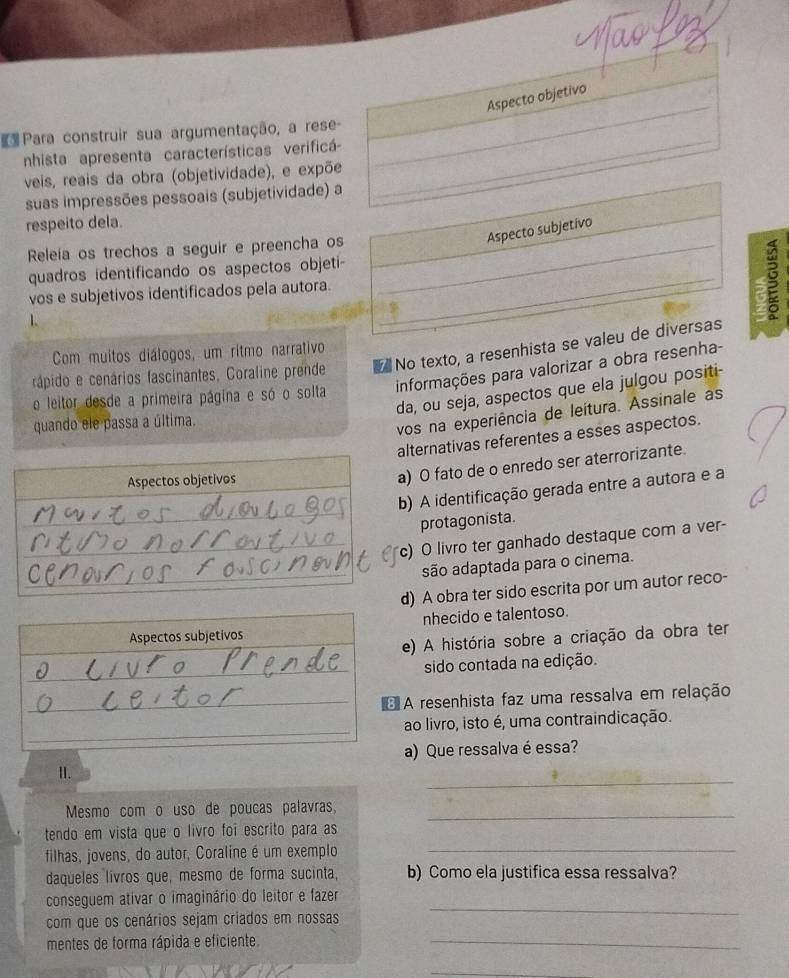 Não fez!
6 Para construir sua argumentação, a rese-
nhista apresenta características verificá-
veis, reais da obra (objetividade), e expõe
suas impressões pessoais (subjetividade) a
respeito dela.
Releia os trechos a seguir e preencha os
quadros identificando os aspectos objeti-
vos e subjetivos identificados pela autora.
I.
Com muitos diálogos, um ritmo narrativo
rápido e cenários fascinantes, Coraline prende
o leitor desde a primeira página e só o solta
quando ele passa a última.
Aspectos objetivos
muitos dialogos
ritmo norrativo
cenarios fascinantes
Aspectos subjetivos
o livro Prende
o leitor
II.
Mesmo com o uso de poucas palavras,
tendo em vista que o livro foi escrito para as
filhas, jovens, do autor, Coraline é um exemplo
daqueles livros que, mesmo de forma sucinta,
conseguem ativar o imaginário do leitor e fazer
com que os cenários sejam criados em nossas
mentes de forma rápida e eficiente.
Aspecto objetivo
Aspecto subjetivo
7 No texto, a resenhista se valeu de diversas
informações para valorizar a obra resenha-
da, ou seja, aspectos que ela julgou positi-
vos na experiência de leitura. Assinale as
alternativas referentes a esses aspectos.
a) O fato de o enredo ser aterrorizante.
b) A identificação gerada entre a autora e a
protagonista.
c) O livro ter ganhado destaque com a ver-
são adaptada para o cinema.
d) A obra ter sido escrita por um autor reco-
nhecido e talentoso.
e) A história sobre a criação da obra ter
sido contada na edição.
8 A resenhista faz uma ressalva em relação
ao livro, isto é, uma contraindicação.
a) Que ressalva é essa?
b) Como ela justifica essa ressalva?
LÍNGUA
PORTUGUESA